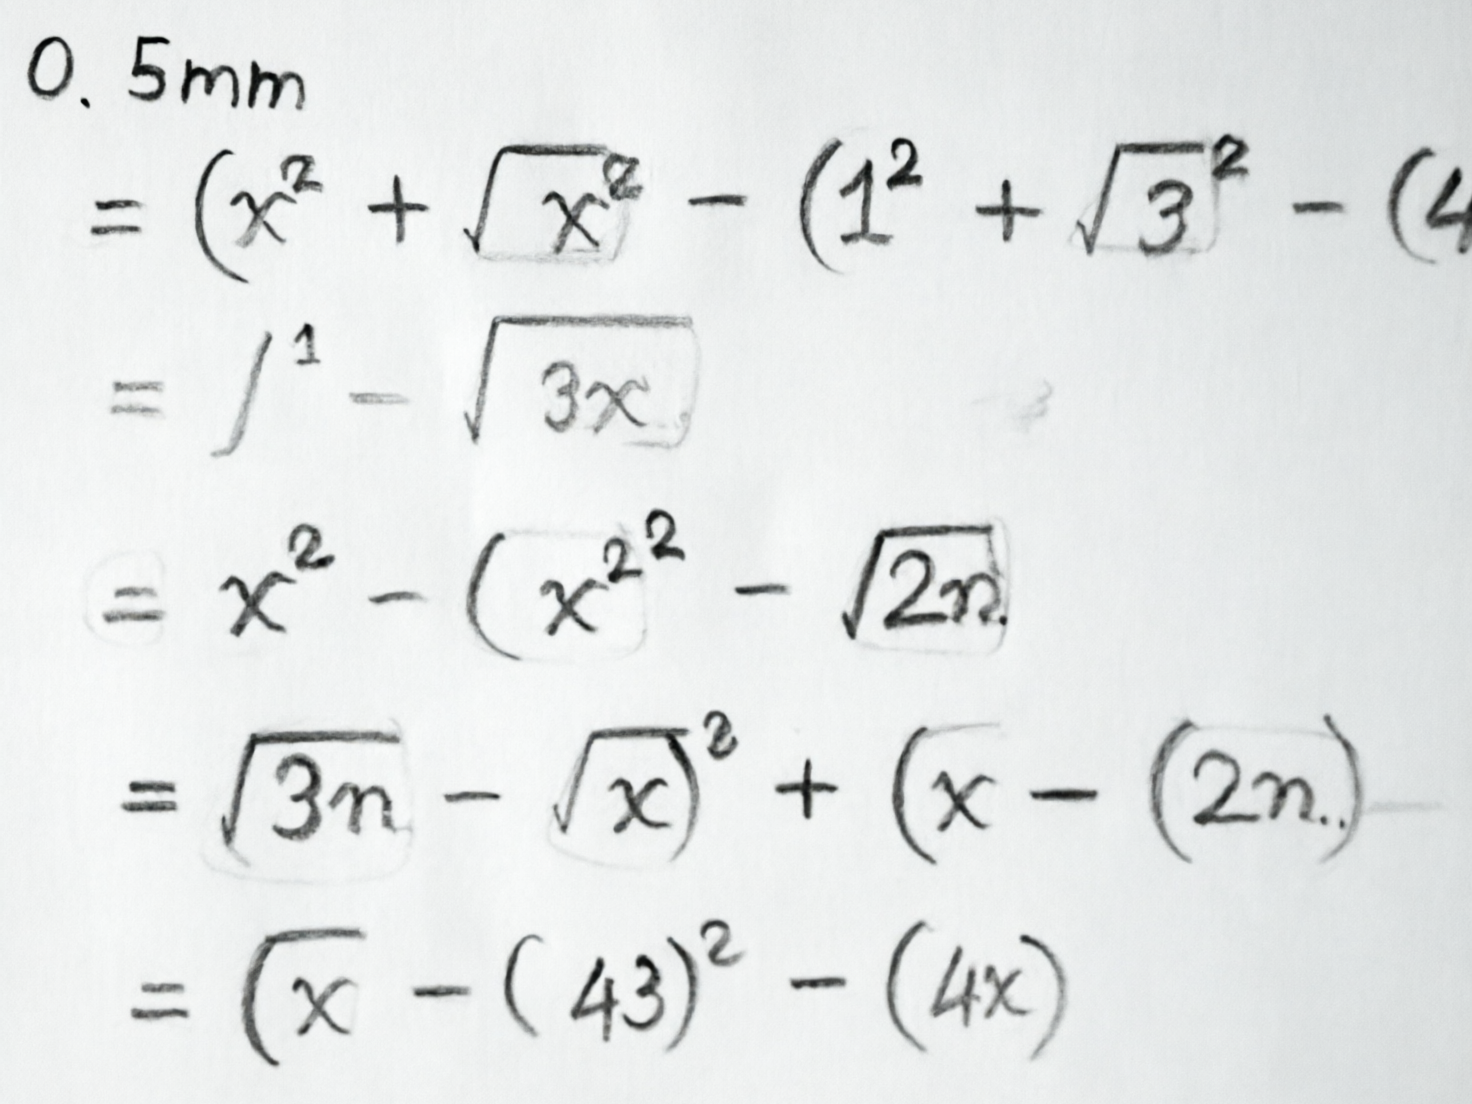 0. 5mm
= (x² + √x² - (1² + √3² - (4
= ∫¹ - √3x
= x² - (x²² - √2n
= √3n - √x)² + (x - (2n..)
= (x̅ - (43)² - (4x)